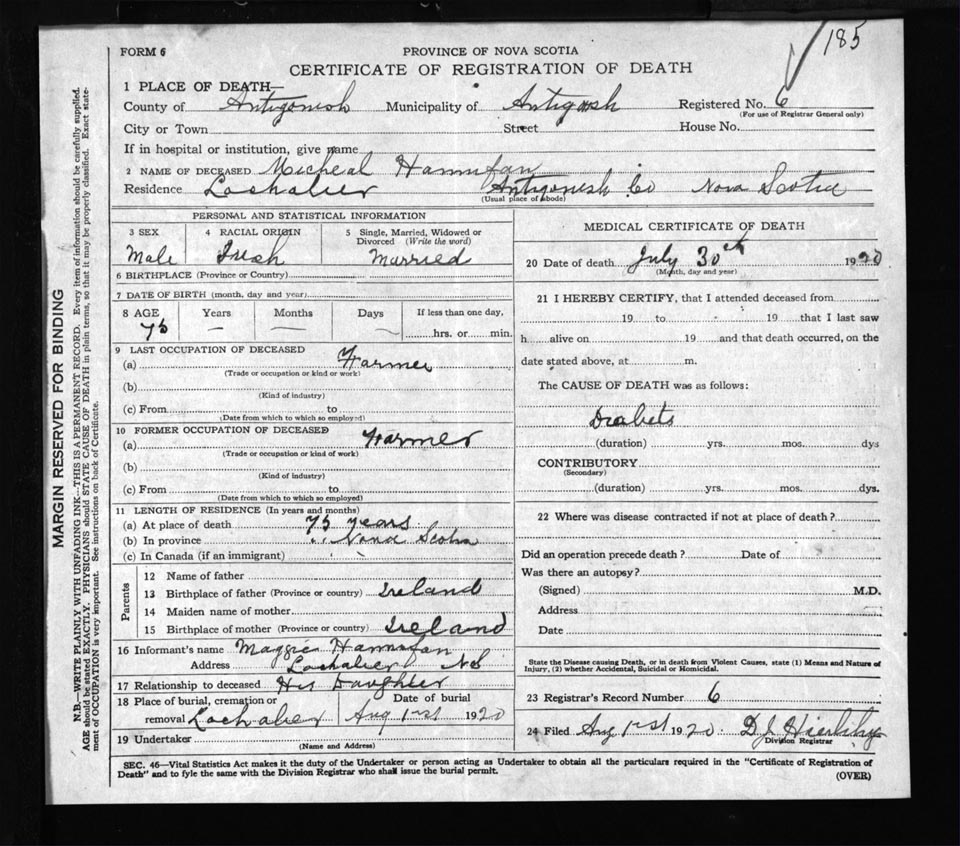 185
FORM 6
PROVINCE OF NOVA SCOTIA
CERTIFICATE OF REGISTRATION OF DEATH
1 PLACE OF DEATH—
County of Antigonish Municipality of Antigonish Registered No. 6
(For use of Registrar General only)
City or Town Street House No.
If in hospital or institution, give name
2 NAME OF DECEASED Micheal Hannifan
Residence Lochaber Antigonish Co Nova Scotia
(Usual place of abode)
PERSONAL AND STATISTICAL INFORMATION
3 SEX 4 RACIAL ORIGIN 5 Single, Married, Widowed or Divorced (Write the word)
Male Irish Married
6 BIRTHPLACE (Province or Country)
7 DATE OF BIRTH (month, day and year)
8 AGE Years Months Days If less than one day,
75 — — — hrs. or min.
9 LAST OCCUPATION OF DECEASED
(a) Farmer
(Trade or occupation or kind or work)
(b)
(Kind of industry)
(c) From to
(Date from which to which so employed)
10 FORMER OCCUPATION OF DECEASED
(a) Farmer
(Trade or occupation or kind of work)
(b)
(Kind of industry)
(c) From to
(Date from which to which so employed)
11 LENGTH OF RESIDENCE (In years and months)
(a) At place of death 75 years
(b) In province " Nova Scotia
(c) In Canada (if an immigrant)
Parents
12 Name of father
13 Birthplace of father (Province or country) Ireland
14 Maiden name of mother
15 Birthplace of mother (Province or country) Ireland
16 Informant's name Maggie Hannifan
Address Lochaber NS
17 Relationship to deceased His Daughter
18 Place of burial, cremation or Date of burial
removal Lochaber Aug 1st 1920
19 Undertaker
(Name and Address)
MEDICAL CERTIFICATE OF DEATH
20 Date of death July 30th 1920
(Month, day and year)
21 I HEREBY CERTIFY, that I attended deceased from
19 to 19 that I last saw
h alive on 19 and that death occurred, on the
date stated above, at m.
The CAUSE OF DEATH was as follows:
Diabets
(duration) yrs. mos. dys
CONTRIBUTORY
(Secondary)
(duration) yrs. mos. dys.
22 Where was disease contracted if not at place of death?
Did an operation precede death? Date of
Was there an autopsy?
(Signed) M.D.
Address
Date
State the Disease causing Death, or in death from Violent Causes, state (1) Means and Nature of
Injury, (2) whether Accidental, Suicidal or Homicidal.
23 Registrar's Record Number 6
24 Filed Aug 1st 1920 D J Hierlihy
Division Registrar
SEC. 46—Vital Statistics Act makes it the duty of the Undertaker or person acting as Undertaker to obtain all the particulars required in the "Certificate of Registration of
Death" and to fyle the same with the Division Registrar who shall issue the burial permit.
(OVER)
MARGIN RESERVED FOR BINDING
N.B.—WRITE PLAINLY WITH UNFADING INK—THIS IS A PERMANENT RECORD. Every item of information should be carefully supplied.
AGE should be stated EXACTLY. PHYSICIANS should STATE CAUSE OF DEATH in plain terms, so that it may be properly classified. Exact state-
ment of OCCUPATION is very important. See instructions on back of Certificate.